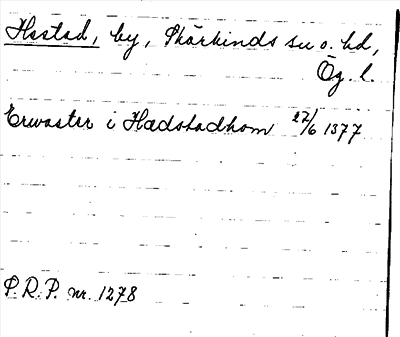 Hastad, by, Skärkinds sn o. hd,
Ög. l.
Erwaster i Hædstadhom 27/6 1377
P.R.P. nr. 1278